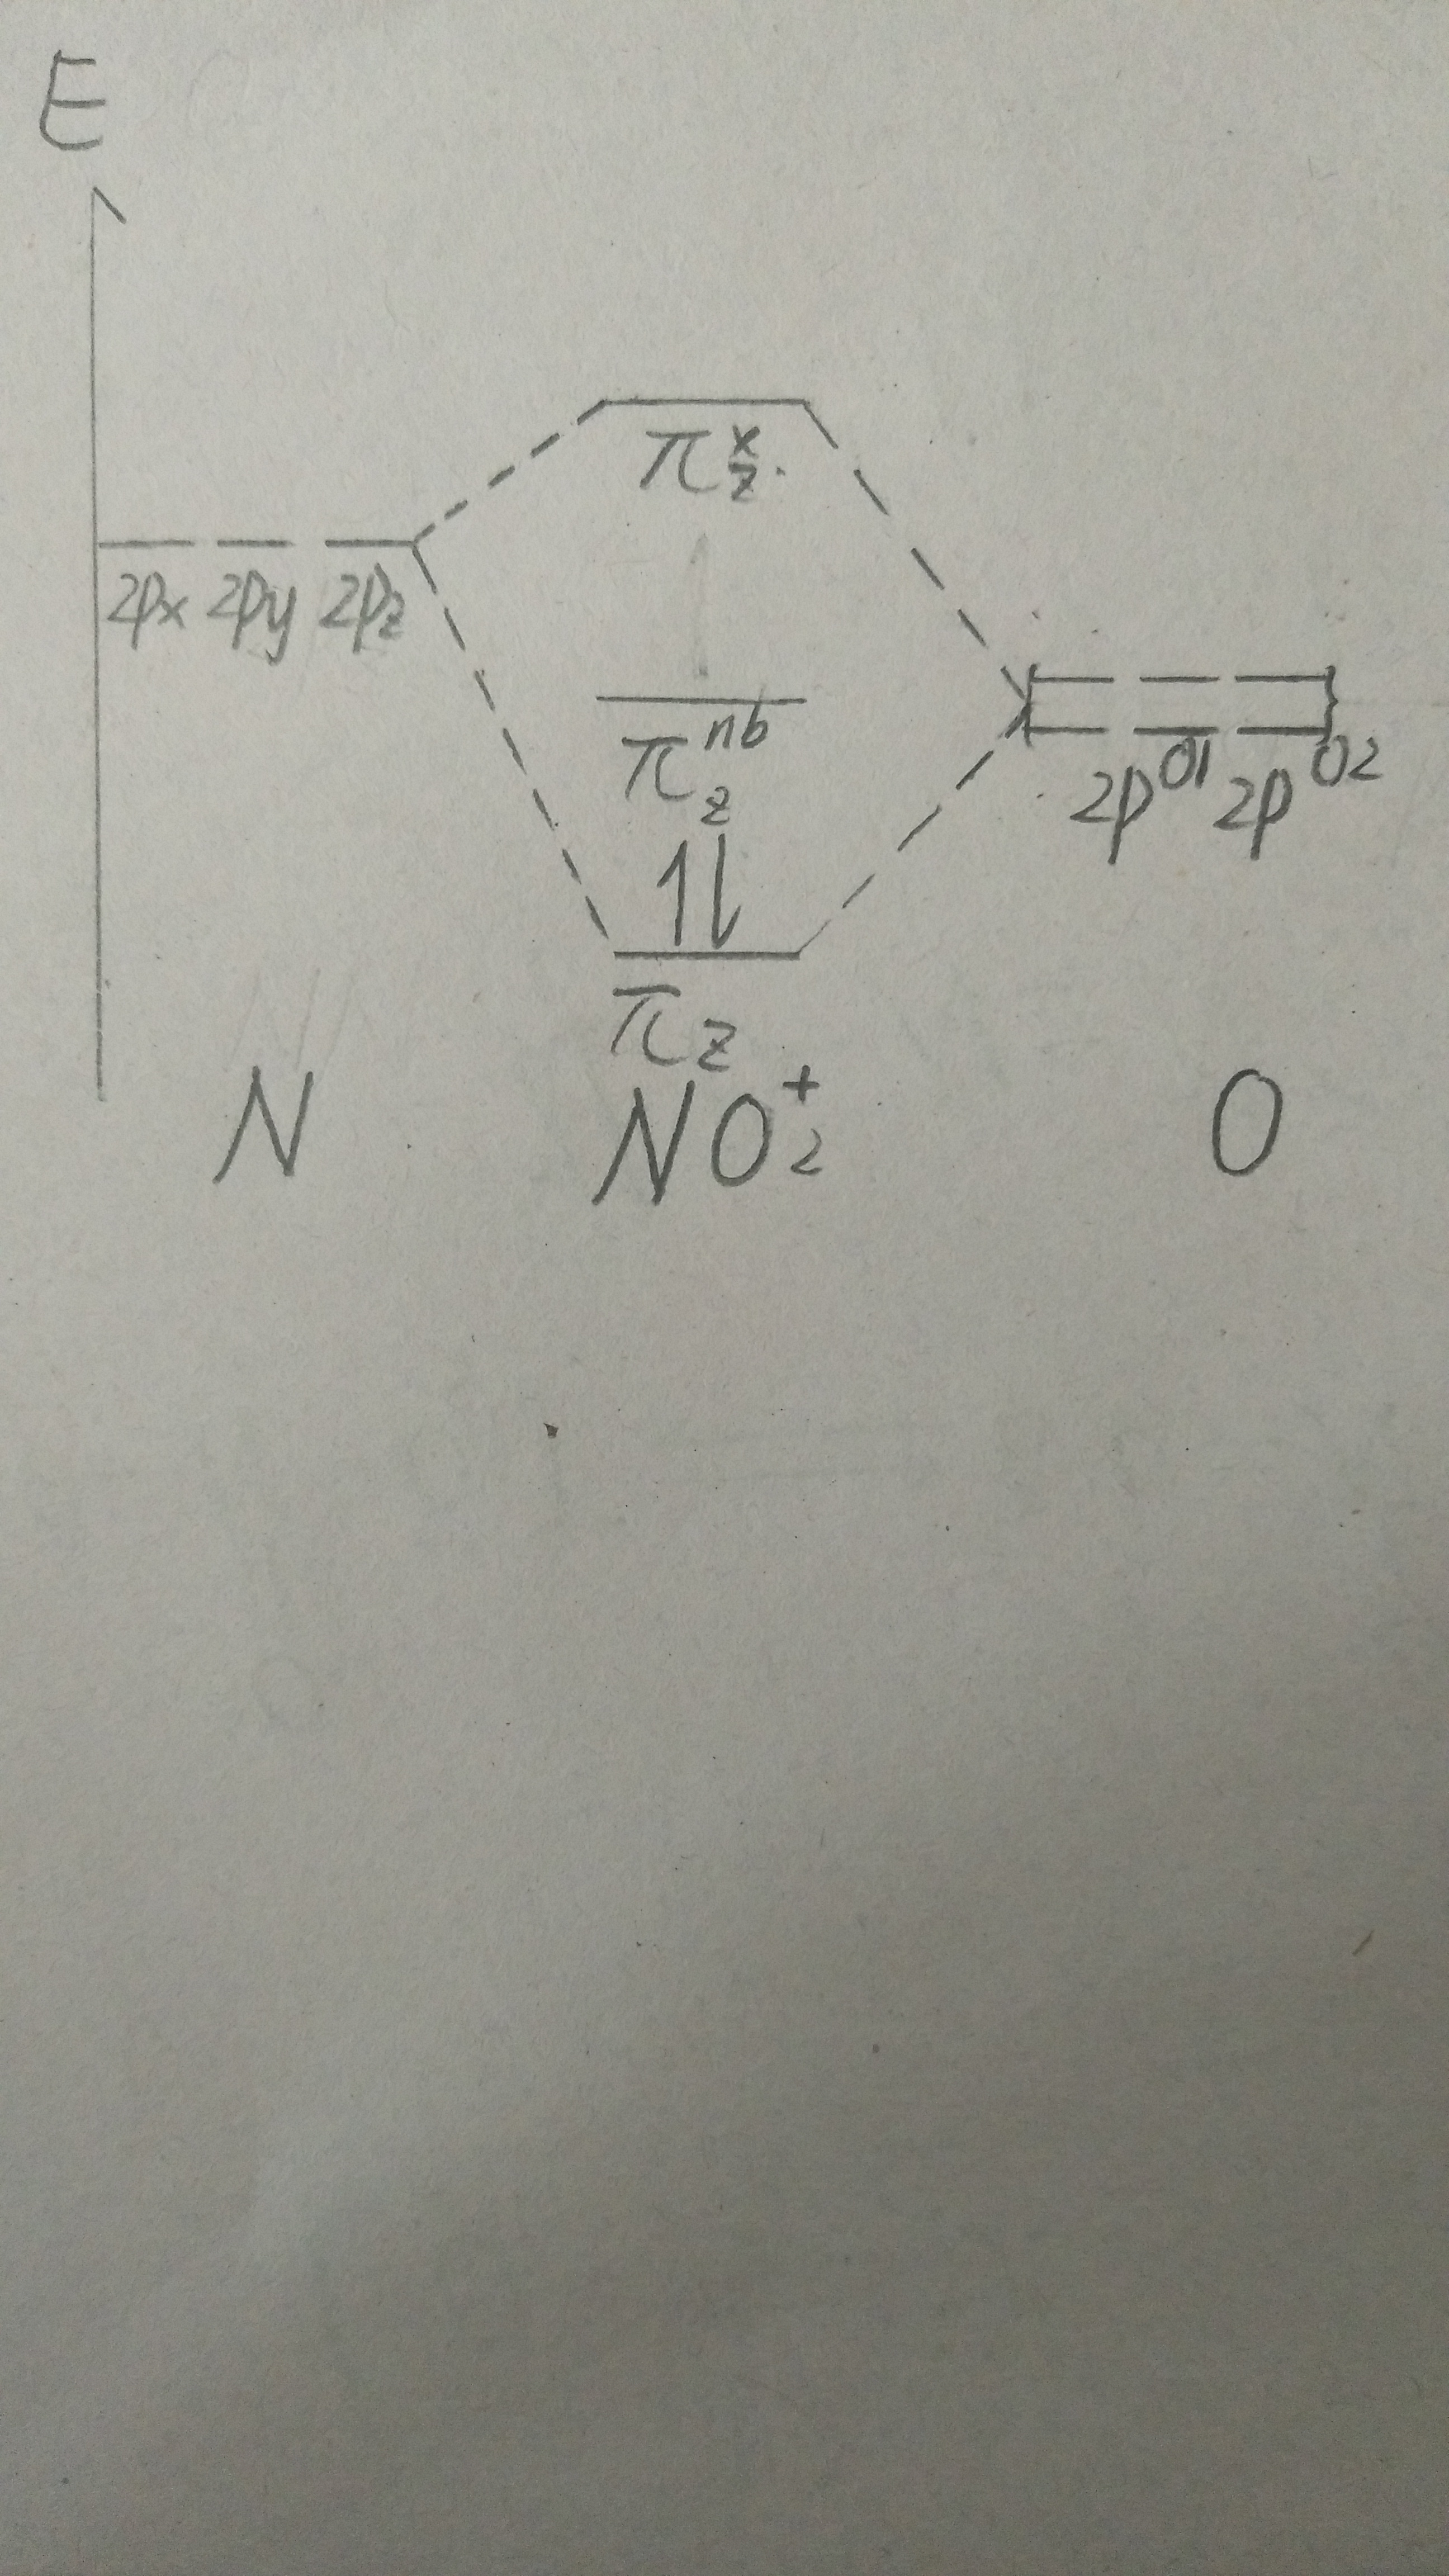 E
π*z
2px 2py 2pz
πz^nb
2p^O1 2p^O2
πz
N NO2+ O